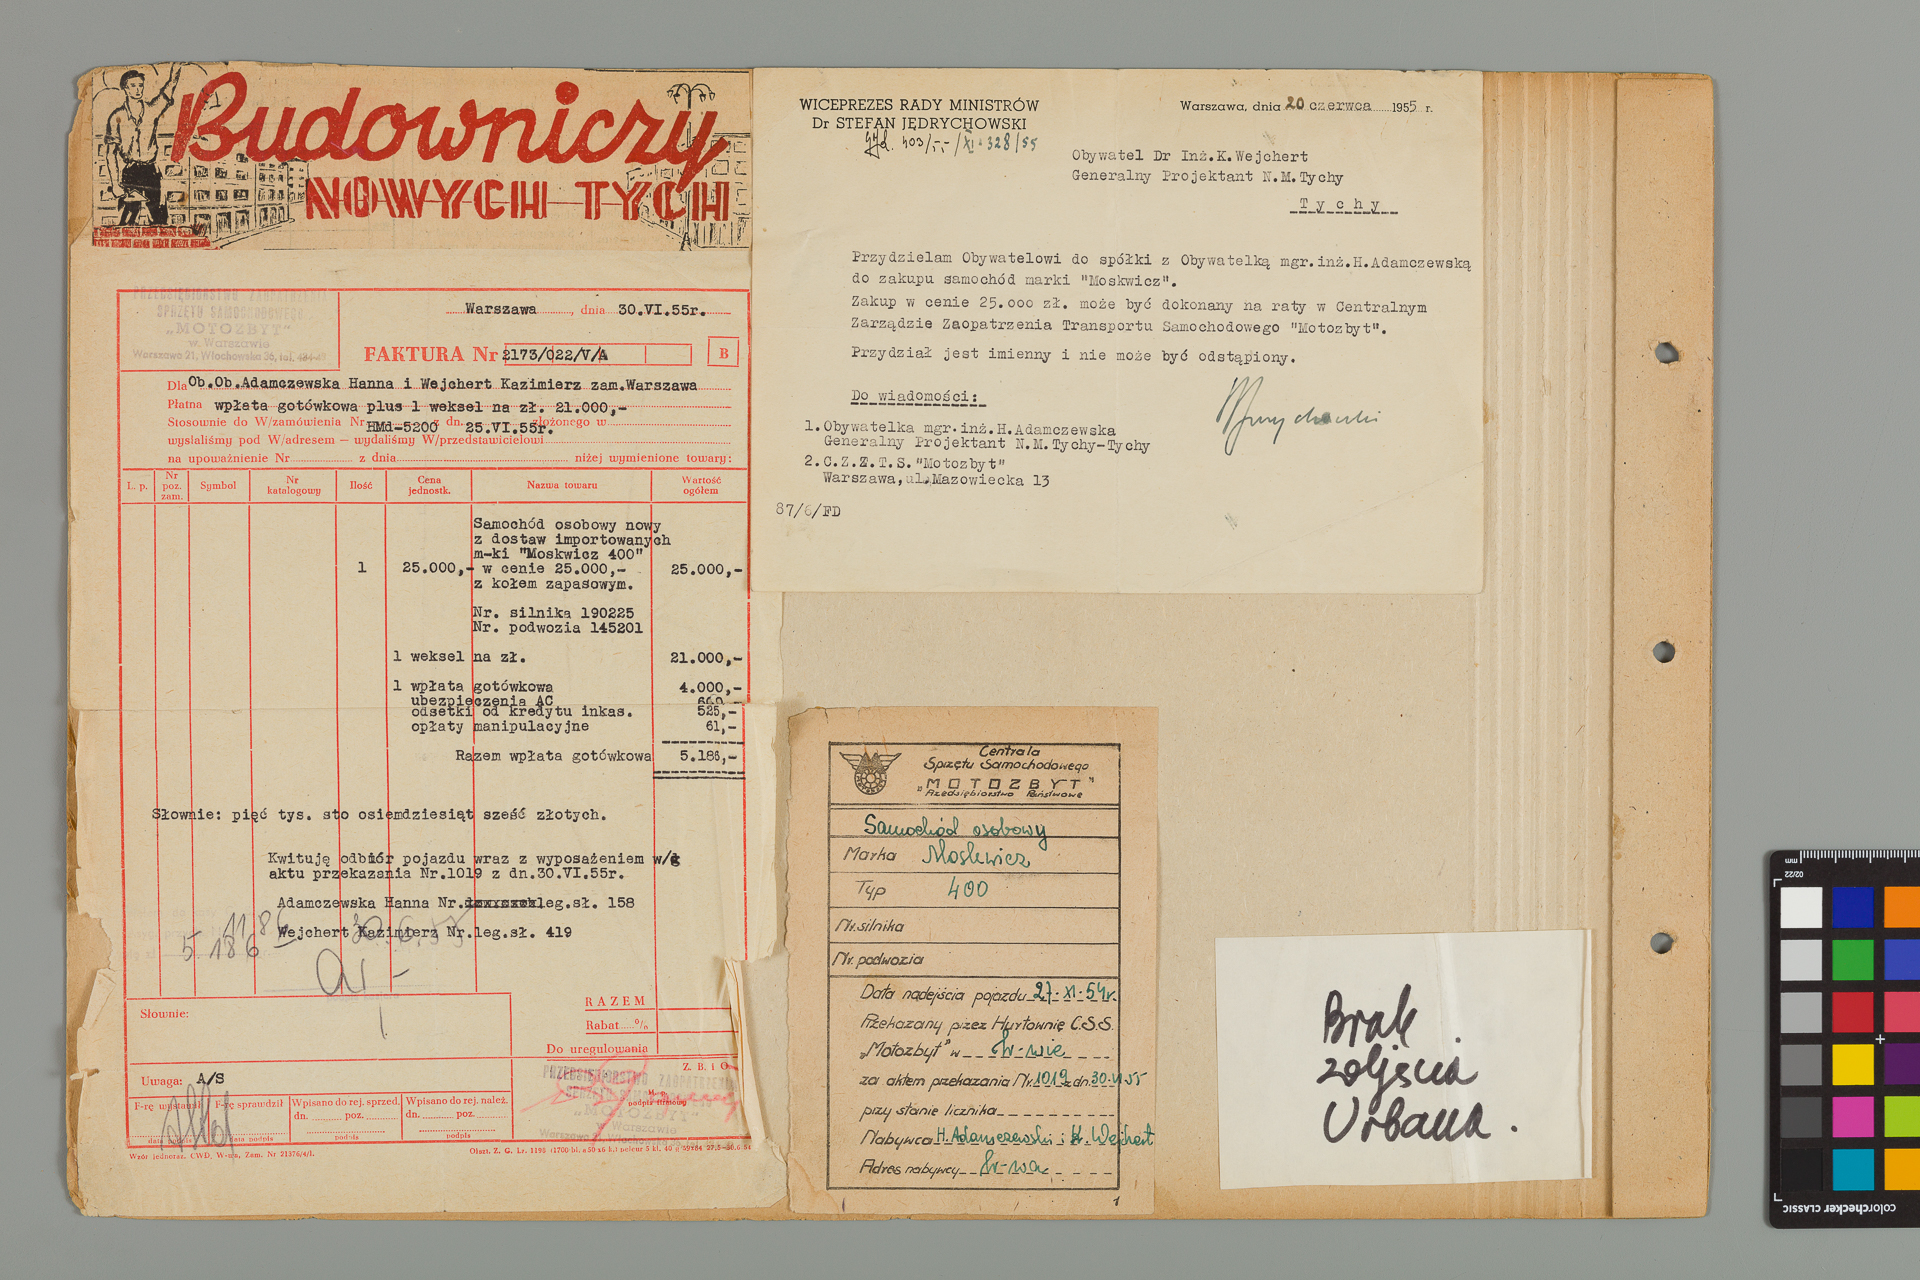 Budowniczy
NOWYCH TYCH
PRZEDSIĘBIORSTWO ZAOPATRZENIA
SPRZĘTU SAMOCHODOWEGO
„MOTOZBYT"
w. Warszawie
Warszawa 21, Włochowska 36, tel.
Warszawa, dnia 30.VI.55r.
FAKTURA Nr 2173/022/V/A
B
Dla Ob.Ob.Adamczewska Hanna i Wejchert Kazimierz zam.Warszawa
Płatna wpłata gotówkowa plus 1 weksel na zł. 21.000,-
Stosownie do W/zamówienia Nr HMd-5200 z dn. 25.VI.55r. złożonego w
wysłaliśmy pod W/adresem — wydaliśmy W/przedstawicielowi
na upoważnienie Nr z dnia niżej wymienione towary:
L. p.
Nr poz. zam.
Symbol
Nr katalogowy
Ilość
Cena jednostk.
Nazwa towaru
Wartość ogółem
Samochód osobowy nowy
z dostaw importowanych
m-ki "Moskwicz 400"
1 25.000,- w cenie 25.000,- 25.000,-
z kołem zapasowym.
Nr. silnika 190225
Nr. podwozia 145201
1 weksel na zł. 21.000,-
1 wpłata gotówkowa 4.000,-
ubezpieczenia AC 600
odsetki od kredytu inkas. 525,-
opłaty manipulacyjne 61,-
Razem wpłata gotówkowa 5.186,-
Słownie: pięć tys. sto osiemdziesiąt sześć złotych.
Kwituję odbiór pojazdu wraz z wyposażeniem w/g
aktu przekazania Nr.1019 z dn.30.VI.55r.
Adamczewska Hanna Nr. leg.sł. 158
Wejchert Kazimierz Nr.leg.sł. 419
1186
5 186
30.6.55
Słownie:
RAZEM
Rabat %
Do uregulowania
Uwaga: A/S
Z. B. i O
F-rę wystawił
F-rę sprawdził
Wpisano do rej. sprzed.
dn. poz.
Wpisano do rej. należ.
dn. poz.
data podpis
data podpis
podpis
podpis
PRZEDSIĘBIORSTWO ZAOPATRZENIA
„MOTOZBYT"
w Warszawie
podpis firmowy
Wzór jednoraz. CWD, W-wa, Zam. Nr 21376/4/I.
WICEPREZES RADY MINISTRÓW
Dr STEFAN JĘDRYCHOWSKI
Warszawa, dnia 20 czerwca 1955 r.
Obywatel Dr Inż.K.Wejchert
Generalny Projektant N.M.Tychy
Tychy
Przydzielam Obywatelowi do spółki z Obywatelką mgr.inż.H.Adamczewską
do zakupu samochód marki "Moskwicz".
Zakup w cenie 25.000 zł. może być dokonany na raty w Centralnym
Zarządzie Zaopatrzenia Transportu Samochodowego "Motozbyt".
Przydział jest imienny i nie może być odstąpiony.
Do wiadomości:
1.Obywatelka mgr.inż.H.Adamczewska
Generalny Projektant N.M.Tychy-Tychy
2.C.Z.Z.T.S."Motozbyt"
Warszawa,ul.Mazowiecka 13
87/6/FD
Centrala
Sprzętu Samochodowego
„MOTOZBYT"
Przedsiębiorstwo Państwowe
Samochód osobowy
Marka Moskwicz
Typ 400
Nr. silnika
Nr. podwozia
Data nadejścia pojazdu 27-XI-54r.
Przekazany przez Hurtownię C.S.S.
„Motozbyt" w W-wie
za aktem przekazania Nr. 1019 z dn. 30.VI.55
przy stanie licznika
Nabywca H. Adamczewska i K. Wejchert
Adres nabywcy W-wa
1
Brak
zdjęcia
Urbana.
mm
02/22
colorchecker CLASSIC